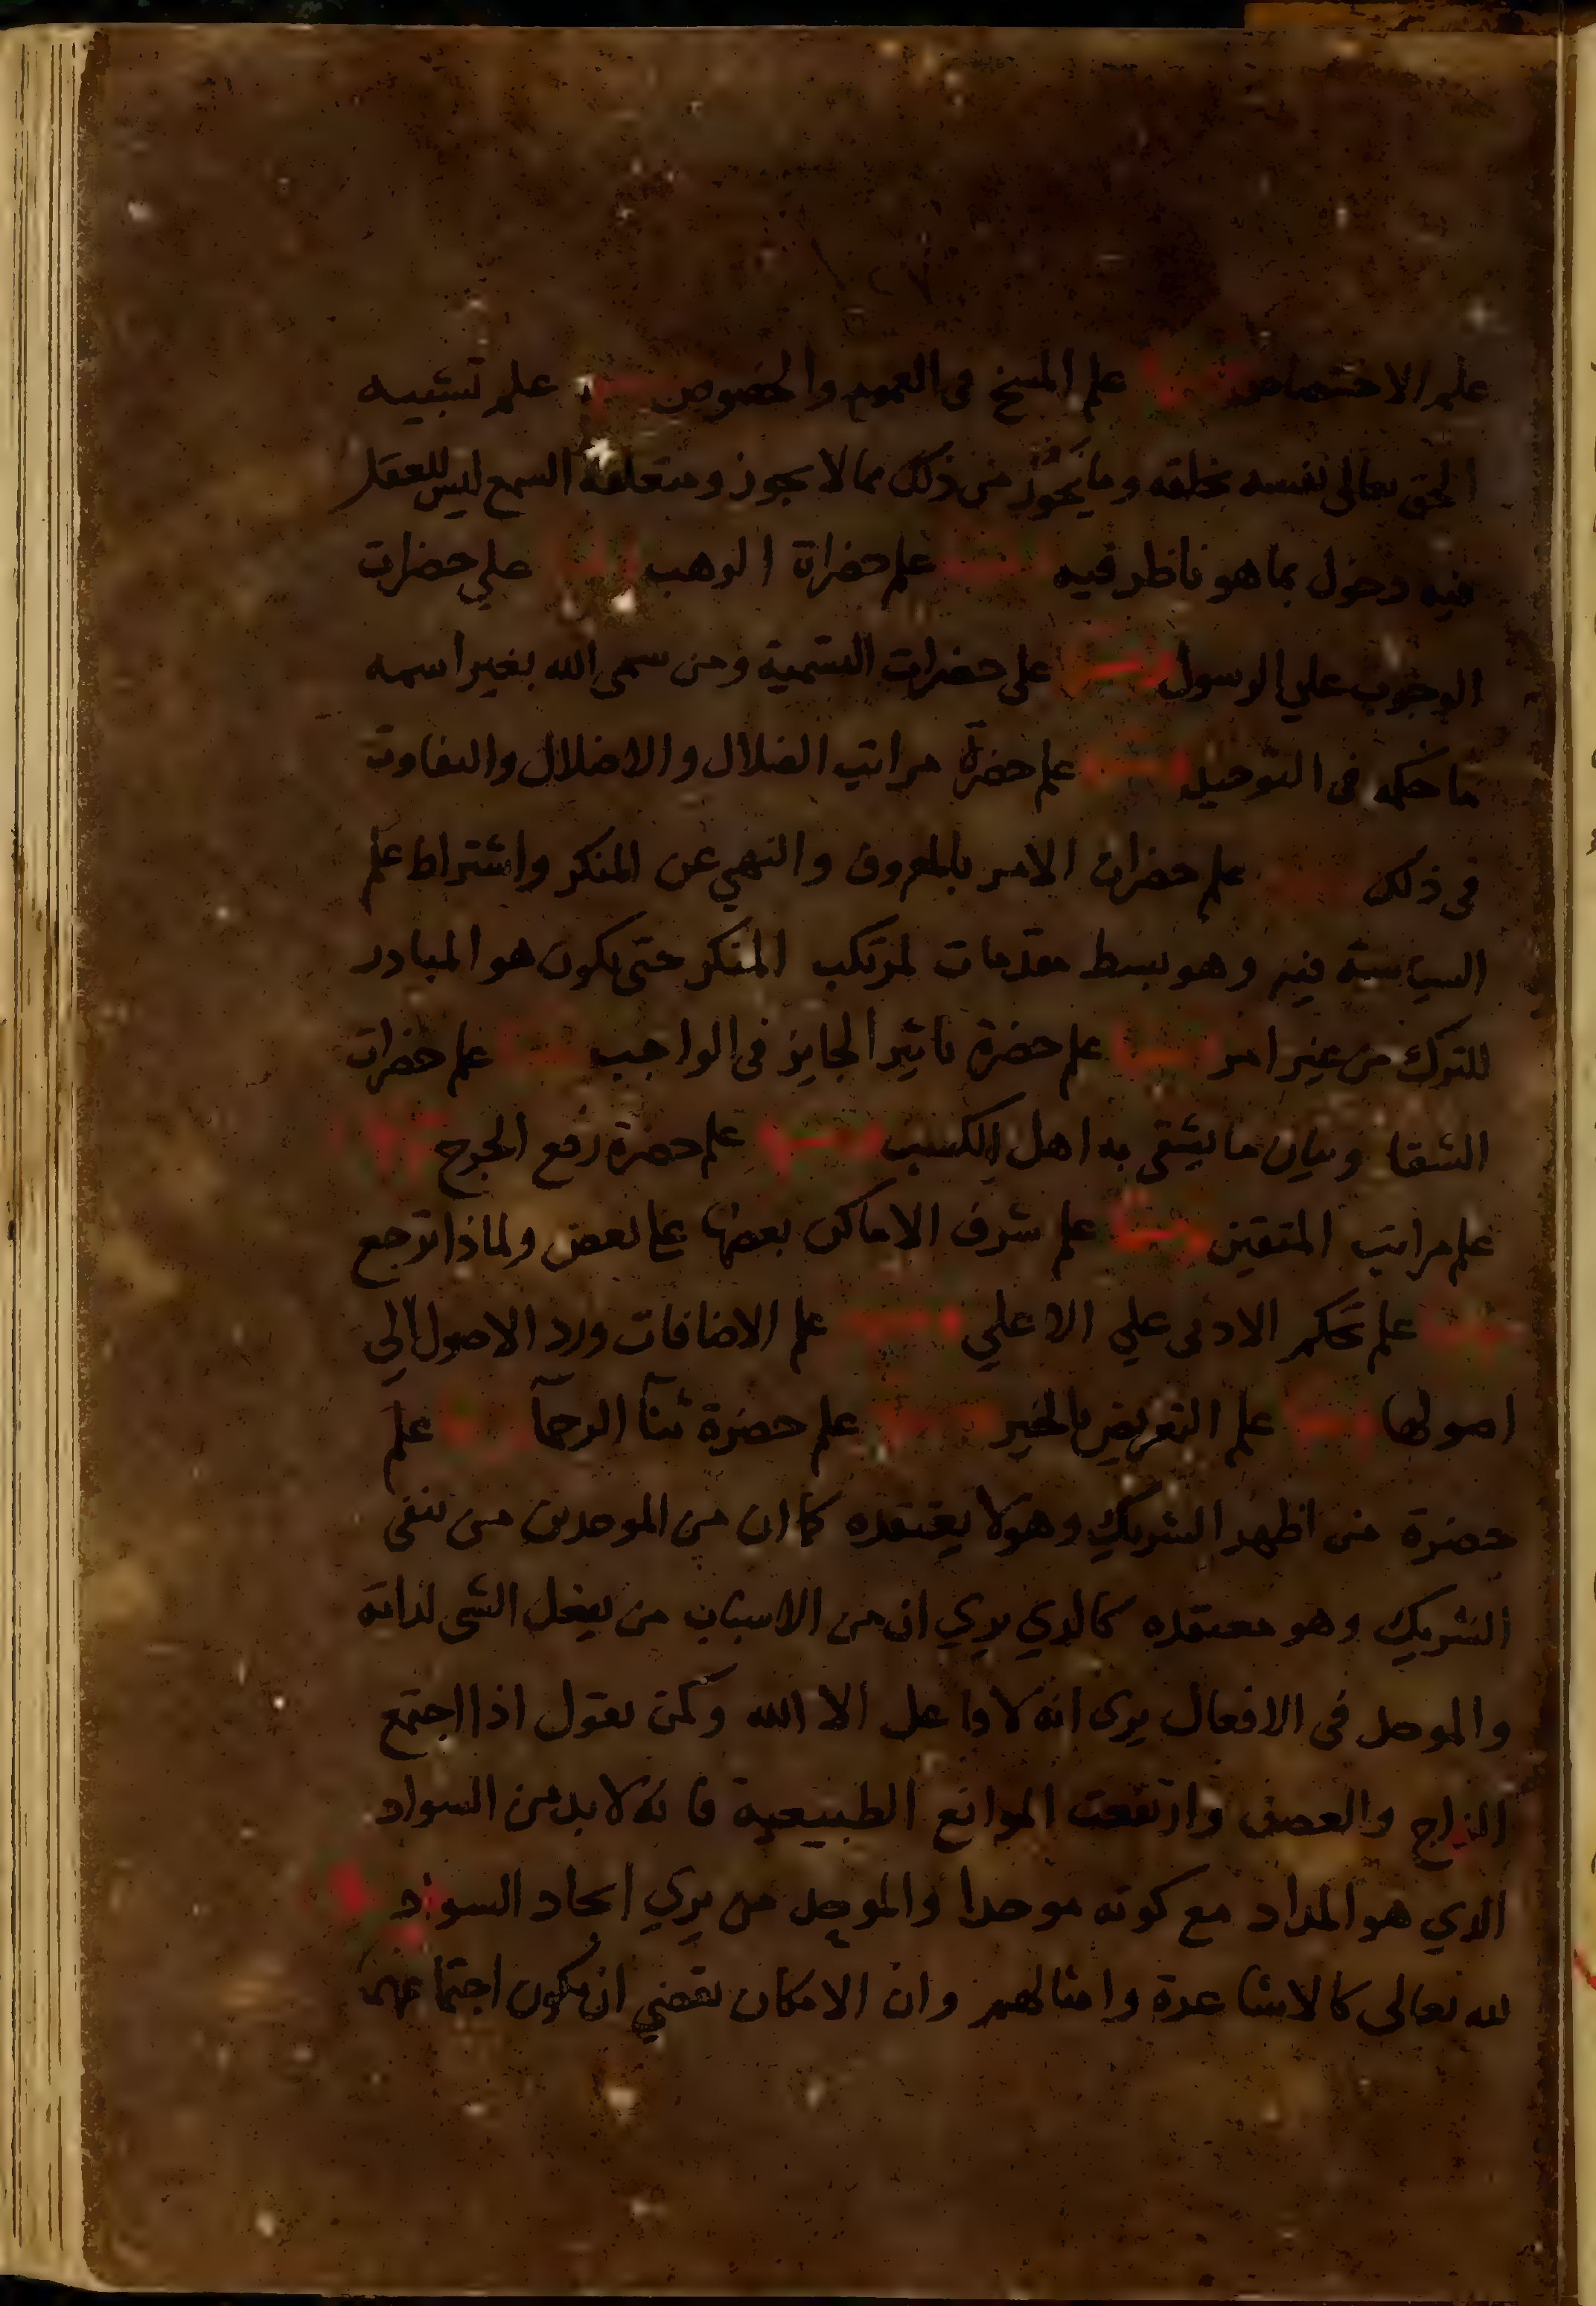 علم الاختصاص علم المسخ فى العموم والخصوص علم تشبيه
الحق تعالى نفسه بخلقه وما يجوز من ذلك مما لا يجوز ومتعلقه السمع ليس للعقل
فيه دخول بما هو ناظر فيه علم حضرات الوهب علم حضرات
الوجوب علي الرسول علم حضرات التسمية ومن سمى الله بغير اسمه
ما حكمه فى التوحيد علم حضرة مراتب الضلال والاضلال والتفاوت
فى ذلك علم حضرات الامر بالمعروف والنهي عن المنكر واشتراط علم
السياسة فيه وهو بسط مقدمات لمرتكب المنكر حتى يكون هو المبادر
للترك من غير امر علم حضرة تاثير الجايز فى الواجب علم حضرات
الشقا وبيان ما يشقى به اهل الكسب علم حضرة رفع الحرج
علم مراتب المتقين علم شرف الاماكن بعضها على بعض ولماذا ترجع
علم تحكم الادنى علي الاعلي علم الاضافات ورد الاصول الي
اصولها علم التعريض بالخير علم حضرة ثنآ الرحمآ علم
حضرة من اظهر الشريك وهو لا يعتقده كما ان من الموحدين من ينفى
الشريك وهو معتقده كالذي يري ان من الاسباب من يفعل الشى لذاته
والموحد فى الافعال يرى انه لا فاعل الا الله ولكن يقول اذا اجتمع
الزاج والعصف وارتفعت الموانع الطبيعية فانه لا بد من السواد
الذي هو المداد مع كونه موحدا والموحد من يري ايجاد السواد
لله تعالى كالاشاعرة وامثالهم وان الامكان يقضي ان يكون اجتماعهما